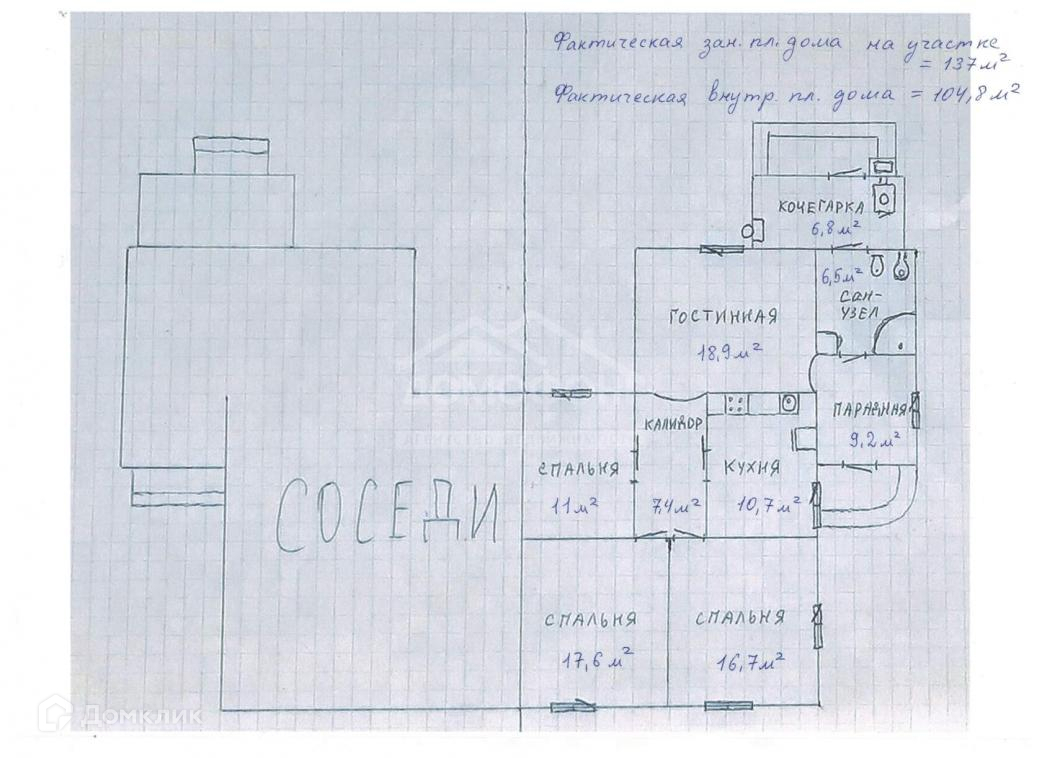 Фактическая зан. пл. дома на участке
= 137 м²
Фактическая внутр. пл. дома = 104,8 м²
КОЧЕГАРКА
6,8 м²
6,5 м²
САН-
УЗЕЛ
ГОСТИННАЯ
18,9 м²
ПАРАДНАЯ
9,2 м²
КАЛИДОР
7,4 м²
КУХНЯ
10,7 м²
СПАЛЬНЯ
11 м²
СОСЕДИ
СПАЛЬНЯ
17,6 м²
СПАЛЬНЯ
16,7 м²
Домклик